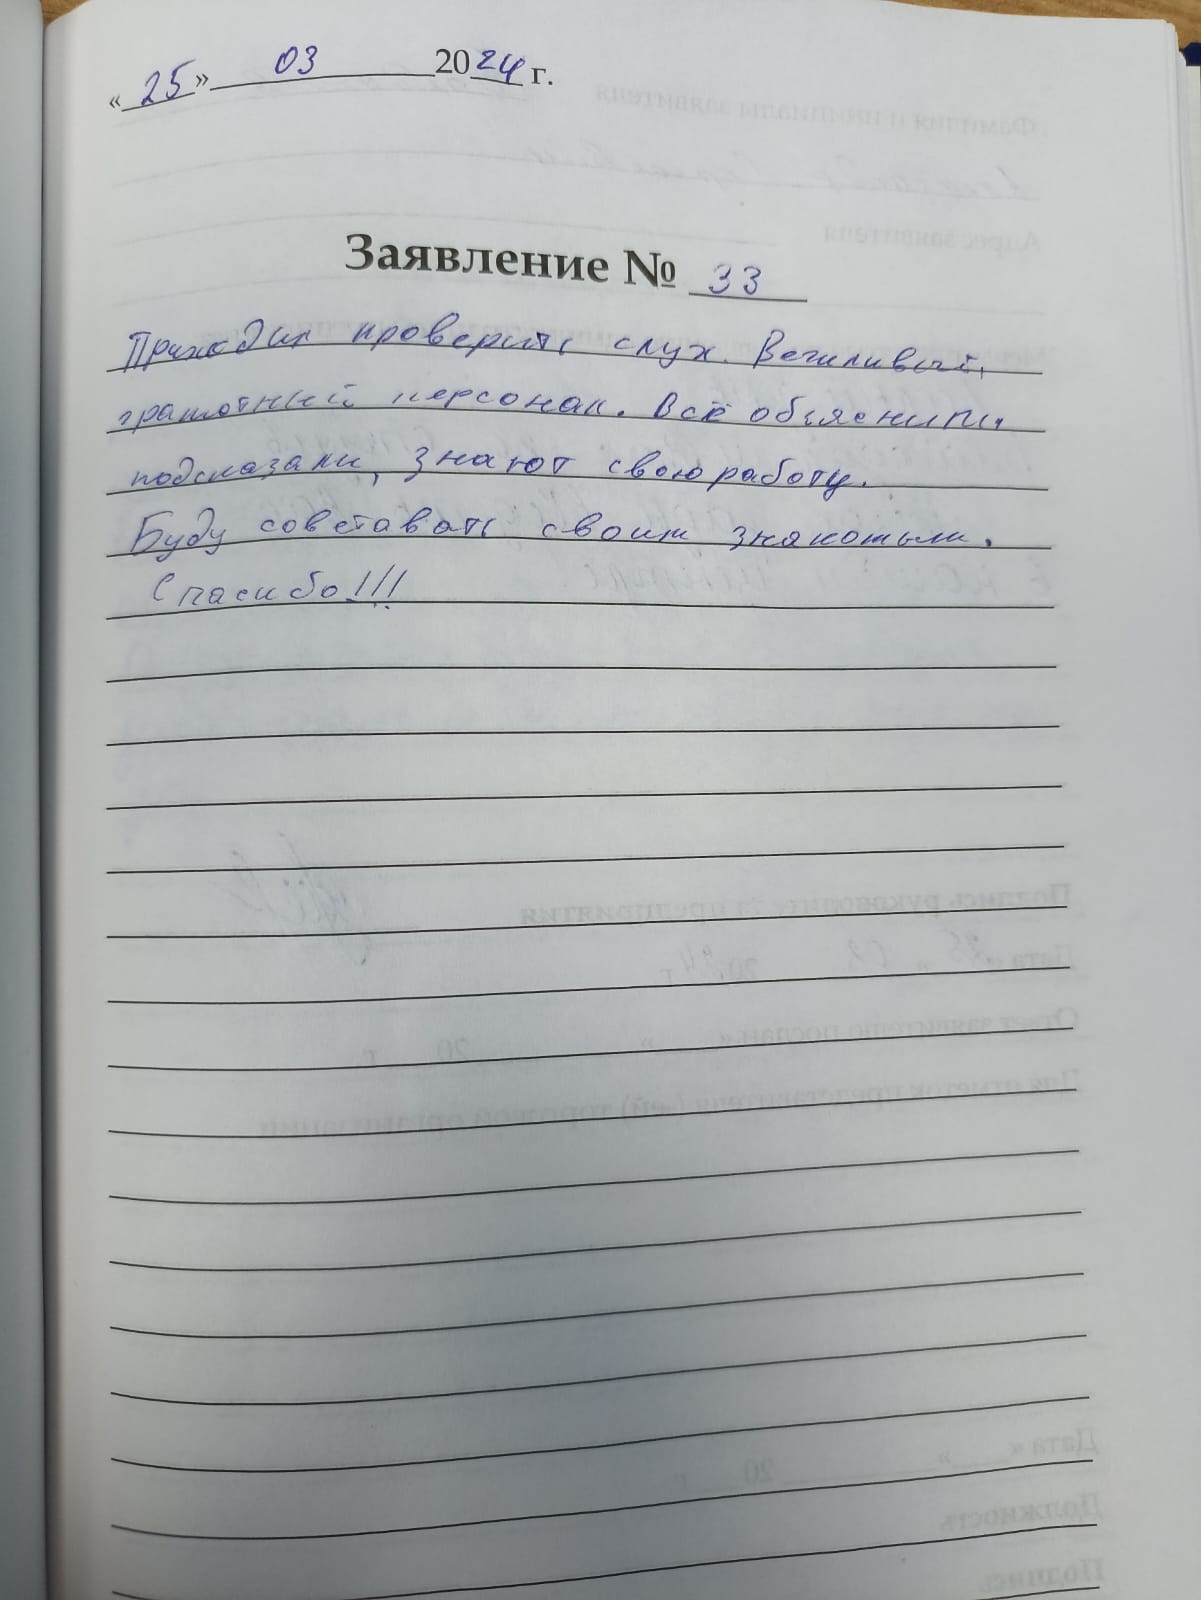 «25» 03 2024 г.
Заявление № 33
Приходил проверить слух. Вежливый,
грамотный персонал. Всё объяснили,
подсказали, знают свою работу.
Буду советовать своим знакомым.
Спасибо!!!